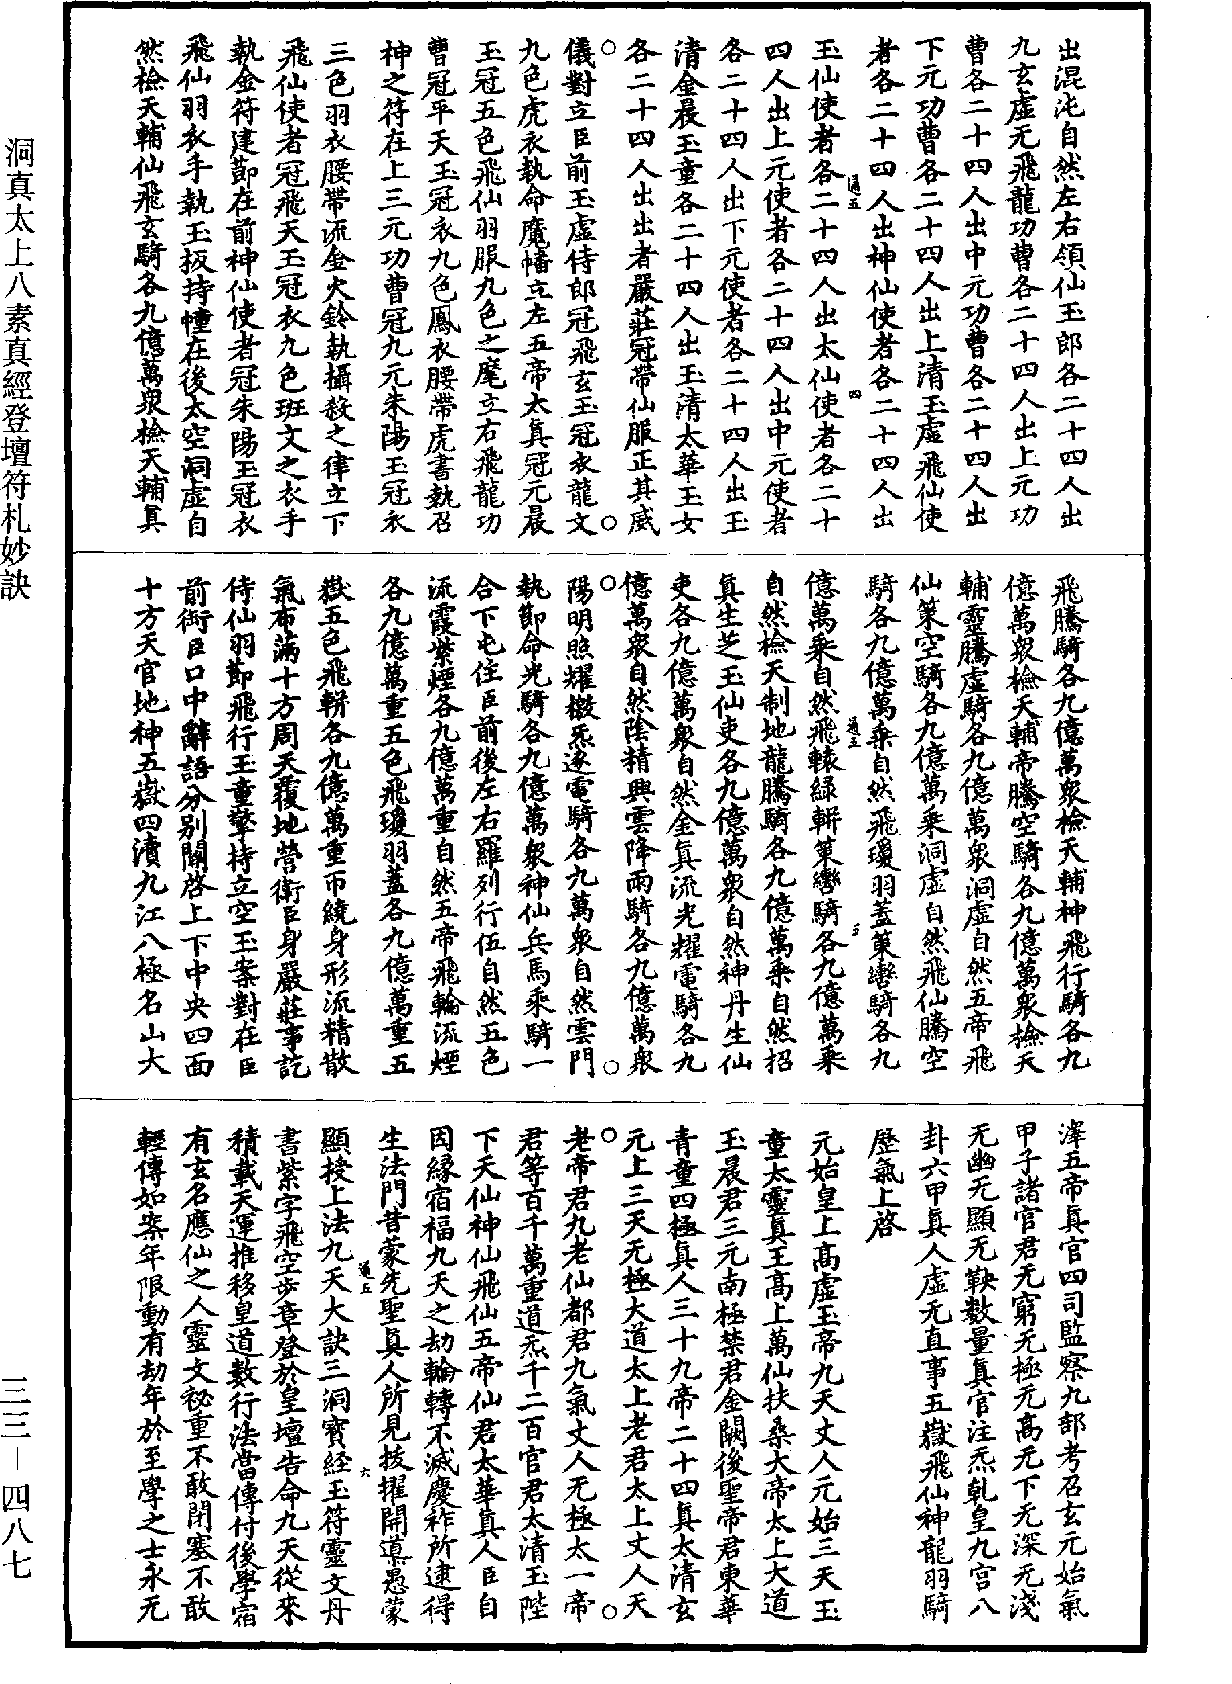 出混沌自然左右領仙玉郎各二十四人出
九玄虛无飛龍功曹各二十四人出上元功
曹各二十四人出中元功曹各二十四人出
下元功曹各二十四人出上清玉虛飛仙使
者各二十四人出神仙使者各二十四人出
玉仙使者各二十四人出太仙使者各二十
四人出上元使者各二十四人出中元使者
各二十四人出下元使者各二十四人出玉
清金晨玉童各二十四人出玉清太華玉女
各二十四人出出者嚴莊冠帶仙服正其威
儀對立臣前玉虛侍郎冠飛玄玉冠衣龍文
九色虎衣執命魔幡立左五帝太真冠元晨
玉冠五色飛仙羽服九色之麾立右飛龍功
曹冠平天玉冠衣九色鳳衣腰帶虎書執召
神之符在上三元功曹冠九元朱陽玉冠衣
三色羽衣腰帶流金火鈴執攝殺之律立下
飛仙使者冠飛天玉冠衣九色班文之衣手
執金符建節在前神仙使者冠朱陽玉冠衣
飛仙羽衣手執玉板持幢在後太空洞虛自
然檢天輔仙飛玄騎各九億萬眾檢天輔真
飛騰騎各九億萬眾檢天輔神飛行騎各九
億萬眾檢天輔帝騰空騎各九億萬眾檢天
輔靈騰虛騎各九億萬眾洞虛自然五帝飛
仙策空騎各九億萬乘洞虛自然飛仙騰空
騎各九億萬乘自然飛瓊羽蓋策轡騎各九
億萬乘自然飛轅綠軿策轡騎各九億萬乘
自然檢天制地龍騰騎各九億萬乘自然招
真生芝玉仙吏各九億萬眾自然神丹生仙
吏各九億萬眾自然金真流光耀電騎各九
億萬眾自然陰精興雲降雨騎各九億萬眾
陽明照耀檄炁逐電騎各九萬眾自然雲門
執節命光騎各九億萬眾神仙兵馬乘騎一
合下屯住臣前後左右羅列行伍自然五色
流霞紫煙各九億萬重自然五帝飛輪流煙
各九億萬重五色飛瓊羽蓋各九億萬重五
嶽五色飛軿各九億萬重帀繞身形流精散
氣布滿十方周天覆地營衛臣身嚴莊事訖
侍仙羽節飛行玉童擎持立空玉案對在臣
前銜臣口中辭語分別關啓上下中央四面
十方天官地神五嶽四瀆九江八極名山大
澤五帝真官四司監察九部考召玄元始氣
甲子諸官君无窮无極元高元下无深元淺
无幽无顯无鞅數量真官注炁乹皇九宮八
卦六甲真人虛无直事五嶽飛仙神龍羽騎
歷氣上啓
元始皇上高虛玉帝九天丈人元始三天玉
童太靈真王高上萬仙扶桑大帝太上大道
玉晨君三元南極禁君金闕後聖帝君東華
青童四極真人三十九帝二十四真太清玄
元上三天无極大道太上老君太上丈人天
老帝君九老仙都君九氣丈人无極太一帝
君等百千萬重道炁千二百官君太清玉陛
下天仙神仙飛仙五帝仙君太華真人臣自
因緣宿福九天之劫輪轉不滅慶祚所逮得
生法門昔蒙先聖真人所見拔擢開導愚蒙
顯授上法九天大訣三洞寶經玉符靈文丹
書紫字飛空步章登於皇壇告命九天從來
積載天運推移皇道數行法當傳付後學宿
有玄名應仙之人靈文祕重不敢閉塞不敢
輕傳如案年限動有劫年於至學之士永元
洞真太上八素真經登壇符札妙訣
三三－四八七